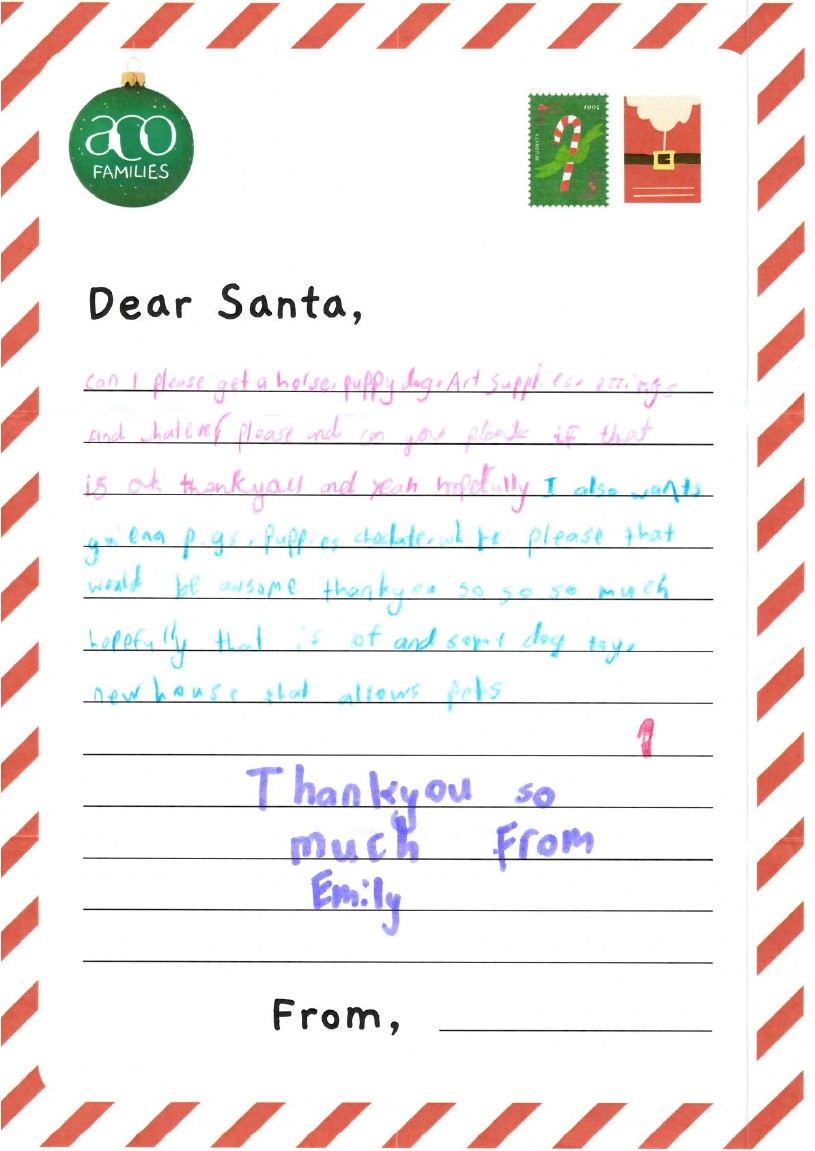 aco
FAMILIES
1997
Dear Santa,
can I please get a horse, puppy dog, Art supplies,
and please and can you if that
is ok thankyou and yeah hopfully I also wants
pigs, puppies please that
would be awsome thankyou so so so much
hoppfully that is of and some dog toys
new house that allows pets
Thankyou so
much From
Emily
From,